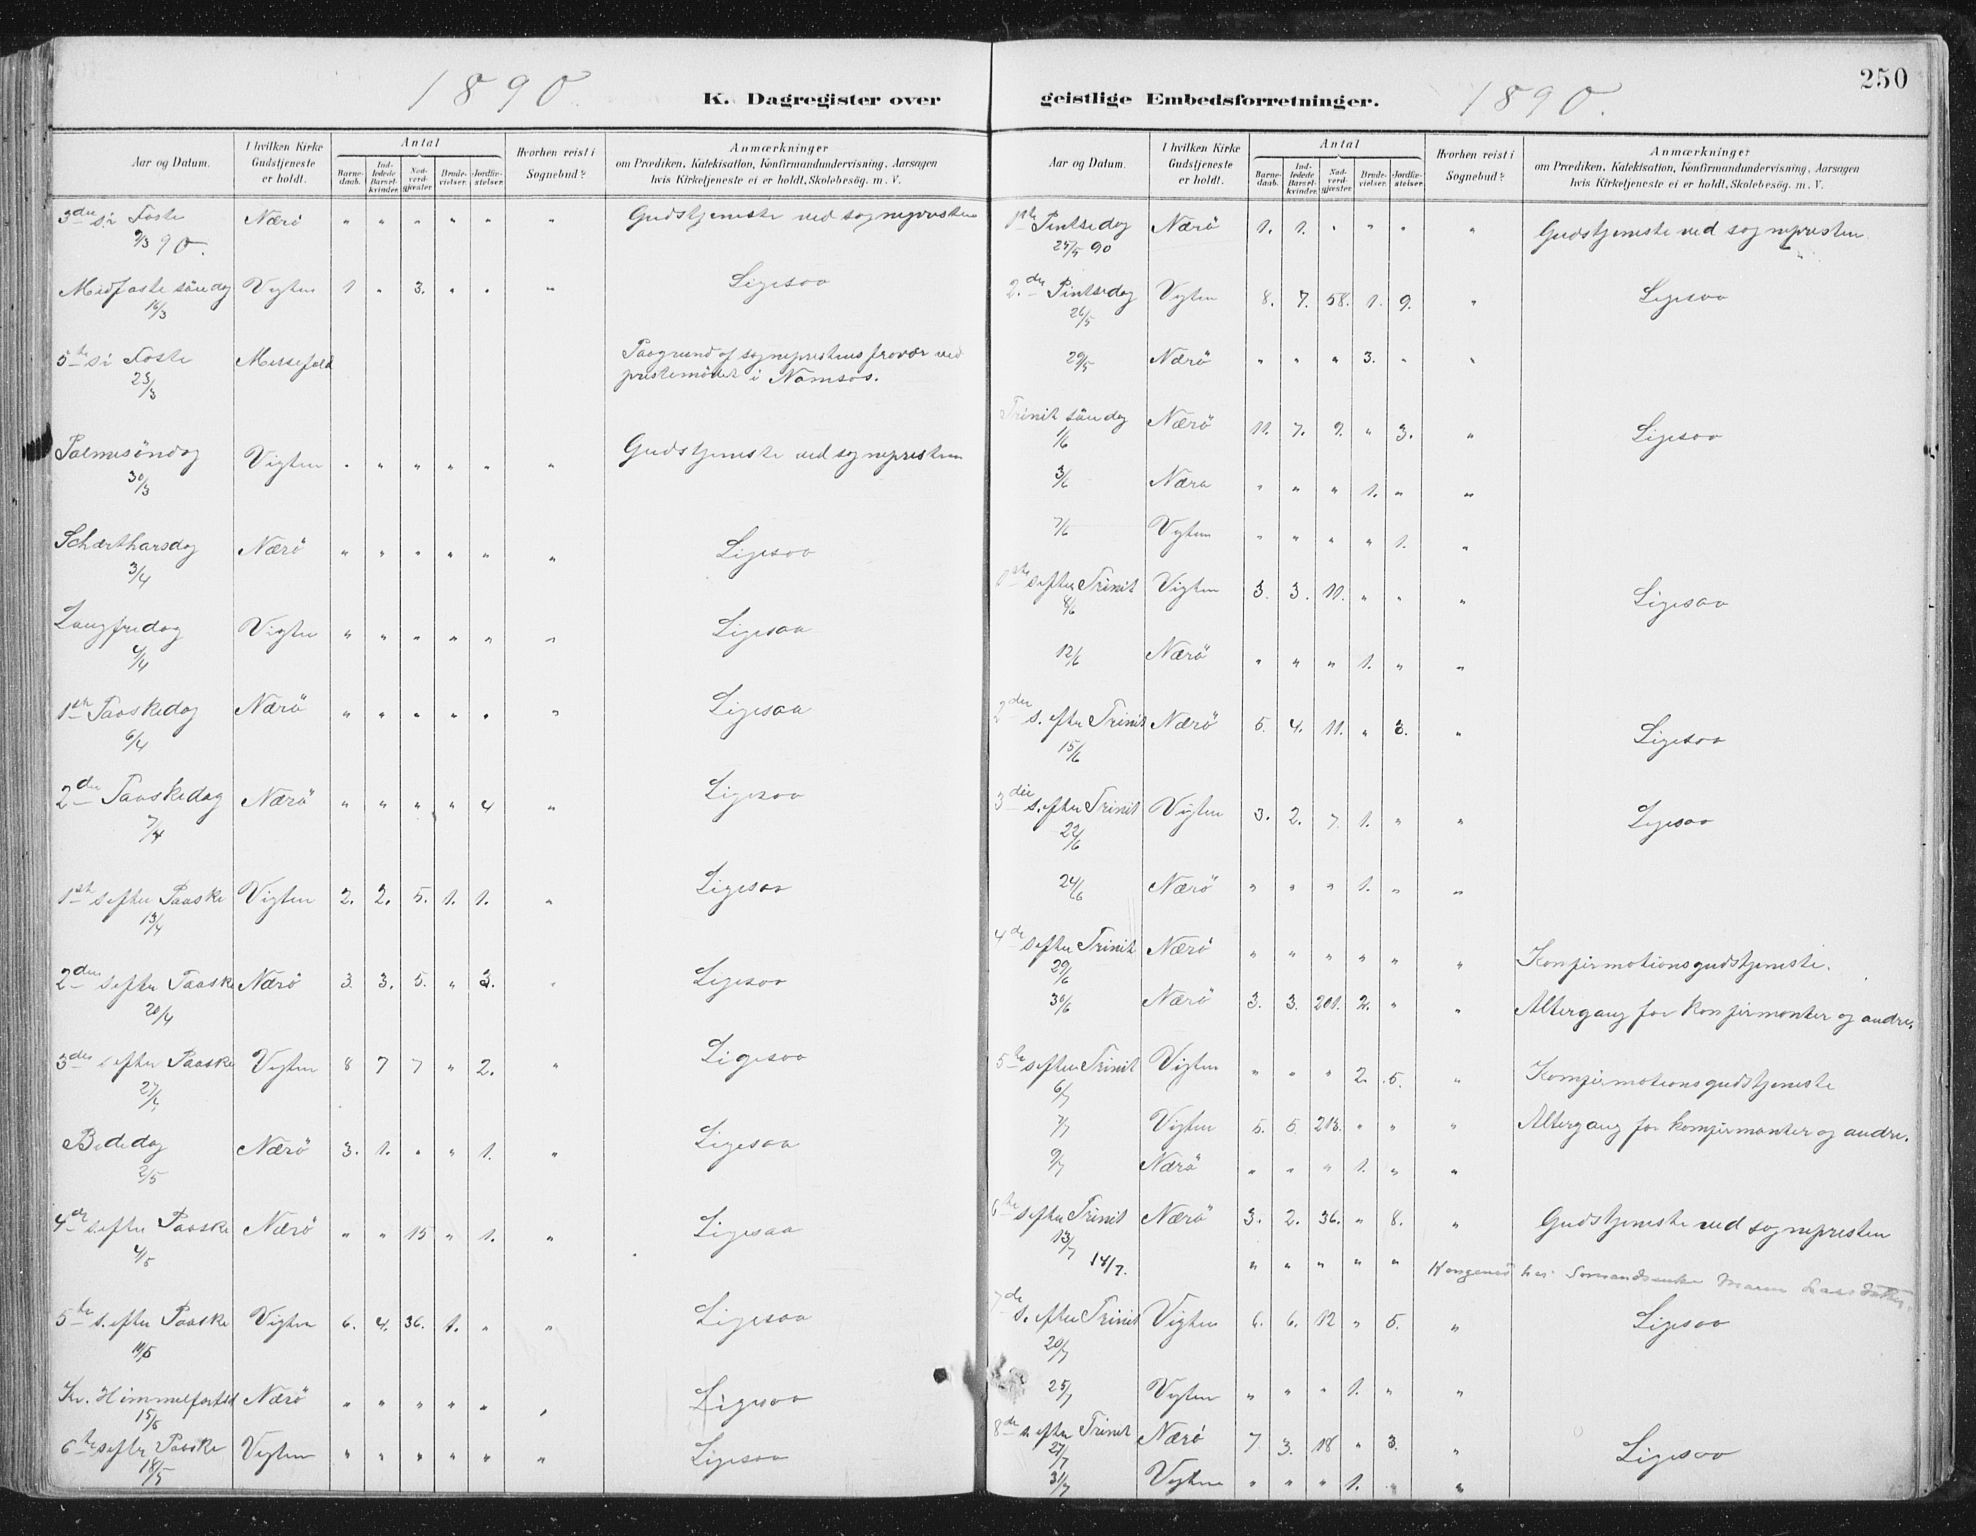 1890.
K. Dagregister over
Aar og Datum. I hvilken Kirke Gudstjeneste er holdt. Antal Barnedaab. Indledede Barselkvinder. Nadverdgjester. Brudevielser. Jordfæstelser. Hvorhen reist i Sognebud? Anmærkninger om Prædiken, Katekisation, Konfirmandundervisning, Aarsagen hvis Kirketjeneste ei er holdt, Skolebesøg. m. V.
3die s. i Faste Nærö " " " " " " Gudstjeneste ved sognepresten
9/3 90.
Midfaste söndag Vigten 1 " 3. " " " Ligesaa
16/3
5te s i Faste Missefald Paagrund af sogneprestens fravær ved
23/3 prestemödet i Namsos.
Palmesöndag Vigten " " " " " " Gudstjeneste ved sognepresten
30/3
Schærtharsdag Nærö " " " " " " Ligesaa
3/4
Langfredag Vigten " " " " " " Ligesaa
4/4
1ste Paaskedag Nærö " " " " " " Ligesaa
6/4
2den Paaskedag Nærö " " " " 4 " Ligesaa
7/4
1ste s efter Paaske Vigten 2. 2. 5. 1. 1. " Ligesaa
13/4
2den s efter Paaske Nærö 3. 3. 5. " 3. " Ligesaa
20/4
3die s efter Paaske Vigten 8 7 7 " 2. " Ligesaa
27/4
Bededag Nærö 3. 1. " " 1. " Ligesaa
2/5
4de s. efter Paaske Nærö " " 15 " 1. " Ligesaa
4/5
5te s. efter Paaske Vigten 6. 4. 36. 1. " " Ligesaa
11/5
Kr. Himmelfartsd Nærö " " " " " " Ligesaa
15/5
6te s efter Paaske Vigten " " " " " " Ligesaa
18/5
geistlige Embedsforretninger. 1890.
250
Aar og Datum. I hvilken Kirke Gudstjeneste er holdt. Antal Barnedaab. Indledede Barselkvinder. Nadverdgjester. Brudevielser. Jordfæstelser. Hvorhen reist i Sognebud? Anmærkninger om Prædiken, Katekisation, Konfirmandundervisning, Aarsagen hvis Kirketjeneste ei er holdt, Skolebesøg. m. V.
1ste Pintsedag Nærö 1. 1. " " " " Gudstjeneste ved sognepresten
25/5 90
2.den Pintsedag Vigten 8. 7. 58. 1. 9. " Ligesaa
26/5
29/5 Nærö " " " 3. " "
Trinit söndag Nærö 11. 7. 9. " 3. " Ligesaa
1/6
3/6 Nærö " " " 1. " "
7/6 Vigten " " " " 1. "
1ste s efter Trinit Vigten 3. 3. 11. " " " Ligesaa
8/6
12/6 Nærö " " " 1. " "
2den s. efter Trinit Nærö 5. 4. 11. " 3. " Ligesaa
15/6
3die s. efter Trinit Vigten 3. 2. 7. 1. " " Ligesaa
22/6
24/6 Nærö " " " 1. " "
4de s efter Trinit Nærö " " " " " " Konfirmationsgudstjeneste.
29/6
30/6 Nærö 3. 3. 201. 2. " " Altergang for konfirmanter og andre.
5te s efter Trinit Vigten " " " 2. 5. " Konfirmationsgudstjeneste
6/7
7/7 Vigten 5. 5 213. " " " Altergang for konfirmanter og andre.
9/7 Nærö " " " 1. " "
6te s efter Trinit Nærö 3. 2. 36. " 8. " Gudstjeneste ved sognepresten
13/7
14/7. " " " " " hos Maren
7de s. efter Trinit Vigten 6. 6. 12 " 5. " Ligesaa
20/7
25/7 Vigten " " " 1. " "
8de s. efter Trinit Nærö 7 3. 18 " 3. " Ligesaa
27/7
31/7 Vigten " " " 1. " "